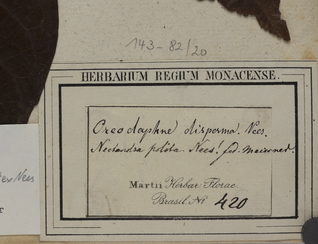 143-82/20
HERBARIUM REGIUM MONACENSE.
Oreodaphne disperma. Nees.
Nectandra polita. Nees! fid. Meissner.
Martii Herbar. Florae
Brasil. No 420
Nees
r